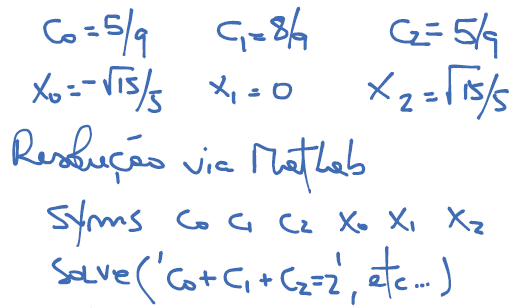 C₀=5/9 C₁=8/9 C₂=5/9
X₀=-√15/5 X₁=0 X₂=√15/5
Resolução via MatLab
Syms C₀ C₁ C₂ X₀ X₁ X₂
Solve('C₀+C₁+C₂=2', etc...)